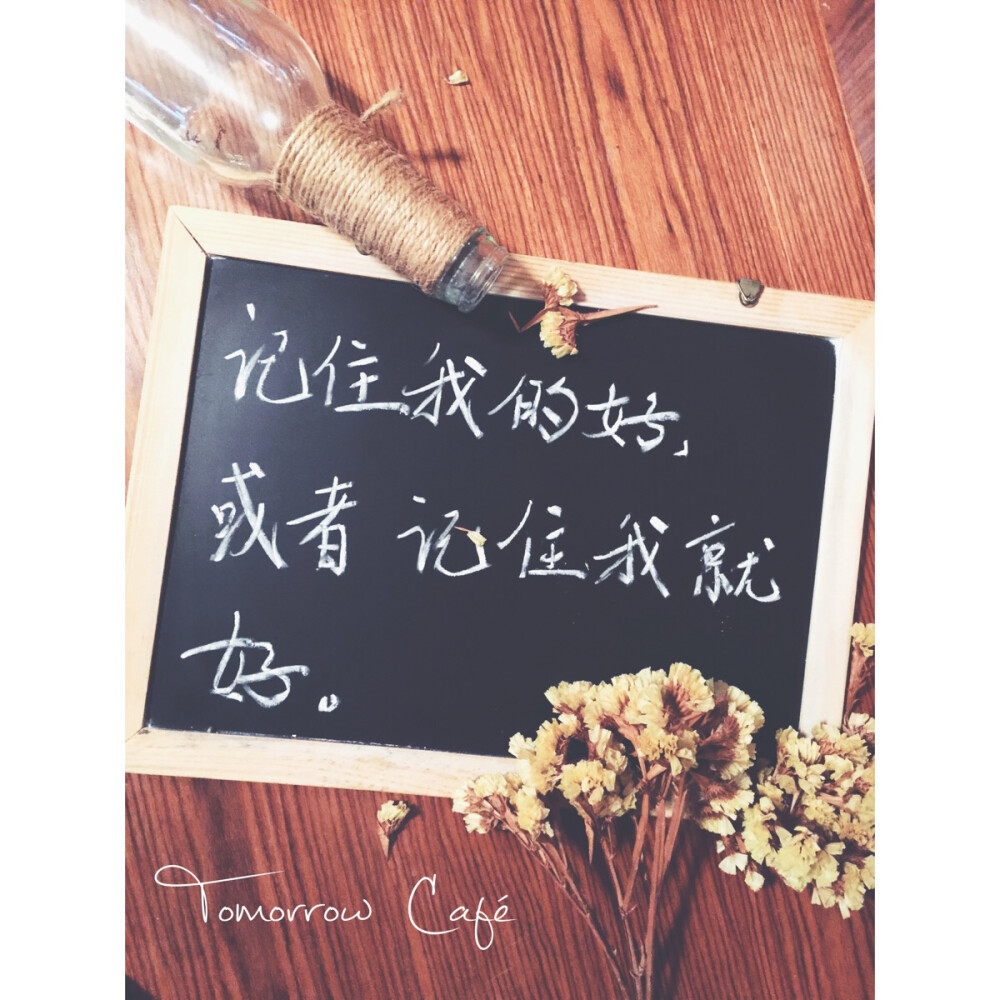 记住我的好，
或者记住我就
好。
Tomorrow Café